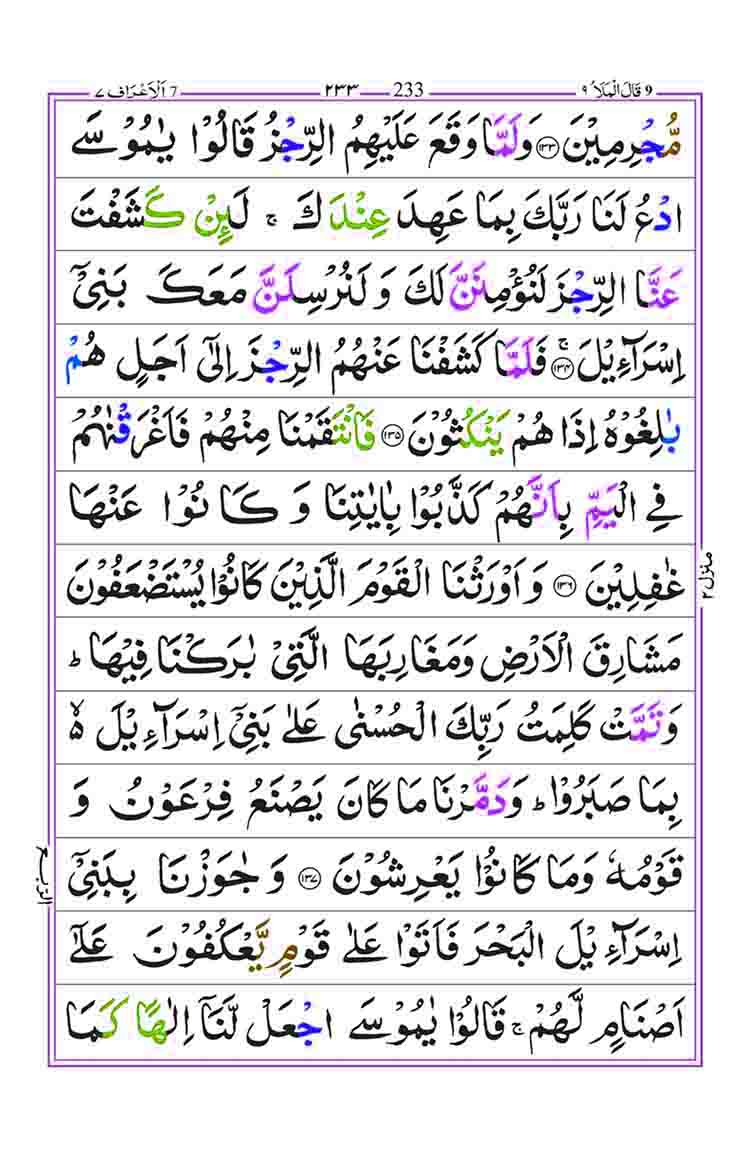 9 قَالَ الْمَلَاُ ٩ 233 ٢٣٣ 7 اَلْاَعْرَاف ٧
مُّجْرِمِيْنَ ۝١٣٣ وَلَمَّا وَقَعَ عَلَيْهِمُ الرِّجْزُ قَالُوْا يٰمُوْسَى
ادْعُ لَنَا رَبَّكَ بِمَا عَهِدَ عِنْدَكَ ۚ لَىِٕنْ كَشَفْتَ
عَنَّا الرِّجْزَ لَنُؤْمِنَنَّ لَكَ وَلَنُرْسِلَنَّ مَعَكَ بَنِيْۤ
اِسْرَآءِيْلَ ۝١٣٤ ۚ فَلَمَّا كَشَفْنَا عَنْهُمُ الرِّجْزَ اِلٰۤى اَجَلٍ هُمْ
بٰلِغُوْهُ اِذَا هُمْ يَنْكُثُوْنَ ۝١٣٥ فَانْتَقَمْنَا مِنْهُمْ فَاَغْرَقْنٰهُمْ
فِي الْيَمِّ بِاَنَّهُمْ كَذَّبُوْا بِاٰيٰتِنَا وَ كَانُوْا عَنْهَا
غٰفِلِيْنَ ۝١٣٦ وَ اَوْرَثْنَا الْقَوْمَ الَّذِيْنَ كَانُوْا يُسْتَضْعَفُوْنَ
مَشَارِقَ الْاَرْضِ وَمَغَارِبَهَا الَّتِيْ بٰرَكْنَا فِيْهَا ؕ
وَتَمَّتْ كَلِمَتُ رَبِّكَ الْحُسْنٰى عَلٰى بَنِيْۤ اِسْرَآءِيْلَ ۙ۬
بِمَا صَبَرُوْا ؕ وَدَمَّرْنَا مَا كَانَ يَصْنَعُ فِرْعَوْنُ وَ
قَوْمُهٗ وَمَا كَانُوْا يَعْرِشُوْنَ ۝١٣٧ وَ جٰوَزْنَا بِبَنِيْۤ
اِسْرَآءِيْلَ الْبَحْرَ فَاَتَوْا عَلٰى قَوْمٍ يَّعْكُفُوْنَ عَلٰۤى
اَصْنَامٍ لَّهُمْ ۚ قَالُوْا يٰمُوْسَى اجْعَلْ لَّنَاۤ اِلٰهًا كَمَا
منزل ٢
الربع